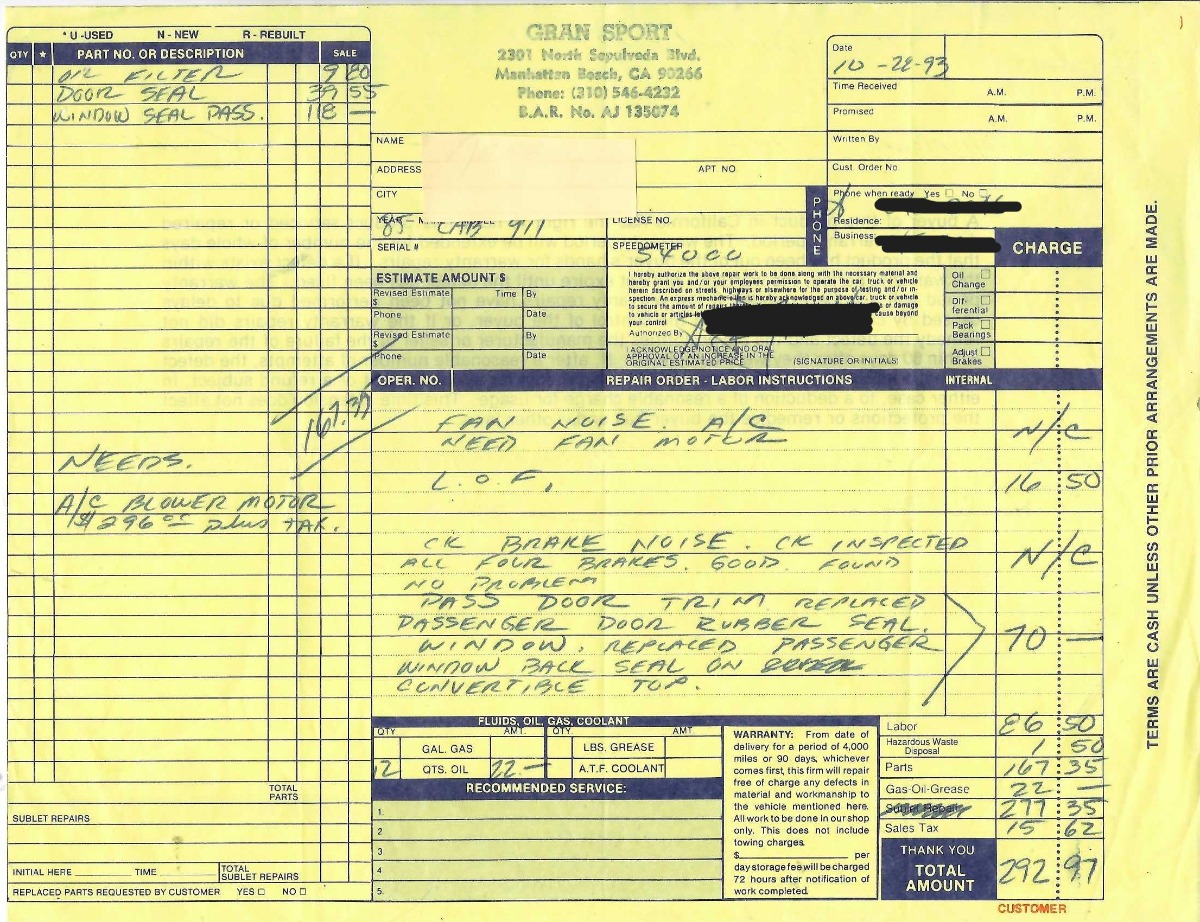 * U-USED N - NEW R - REBUILT
QTY * PART NO. OR DESCRIPTION SALE
OIL FILTER 9 80
DOOR SEAL 39 55
WINDOW SEAL PASS. 118 —
167.35
NEEDS.
A/C BLOWER MOTOR
$296.00 plus TAX.
TOTAL PARTS
SUBLET REPAIRS
INITIAL HERE TIME TOTAL SUBLET REPAIRS
REPLACED PARTS REQUESTED BY CUSTOMER YES NO
GRAN SPORT
2301 North Sepulveda Blvd.
Manhattan Beach, CA 90266
Phone: (310) 546-4232
B.A.R. No. AJ 135074
Date
Time Received A.M. P.M.
Promised A.M. P.M.
Written By
Cust. Order No.
Phone when ready Yes No
PHONE
Residence:
Business:
NAME
ADDRESS APT NO
CITY
85 CAB 911
LICENSE NO.
SERIAL #
SPEEDOMETER
54000
CHARGE
ESTIMATE AMOUNT $
Revised Estimate Time By
$
Phone Date
Revised Estimate By
$
Phone Date
I hereby authorize the above repair work to be done along with the necessary material and
hereby grant you and/or your employees permission to operate the car, truck or vehicle
herein described on streets, highways or elsewhere for the purpose of testing and/or in-
spection. An express mechanic's lien is hereby acknowledged on above car, truck or vehicle
to secure the amount of repairs or damage
to vehicle or articles cause beyond
your control
Authorized By
I ACKNOWLEDGE NOTICE AND ORAL
APPROVAL OF AN INCREASE IN THE
ORIGINAL ESTIMATED PRICE (SIGNATURE OR INITIALS)
Oil Change
Dif-ferential
Pack Bearings
Adjust Brakes
OPER. NO. REPAIR ORDER - LABOR INSTRUCTIONS INTERNAL
FAN NOISE. A/C N/C
NEED FAN MOTOR
L.O.F. 16 50
CK BRAKE NOISE. CK INSPECTED N/C
ALL FOUR BRAKES. GOOD. FOUND
NO PROBLEM
PASS DOOR TRIM REPLACED
PASSENGER DOOR RUBBER SEAL.
WINDOW. REPLACED PASSENGER 70 —
WINDOW BACK SEAL ON
CONVERTIBLE TOP.
FLUIDS, OIL, GAS, COOLANT
QTY AMT. QTY. AMT
GAL. GAS LBS. GREASE
12 QTS. OIL 22.— A.T.F. COOLANT
RECOMMENDED SERVICE:
1.
2
3
4
5.
WARRANTY: From date of
delivery for a period of 4,000
miles or 90 days, whichever
comes first, this firm will repair
free of charge any defects in
material and workmanship to
the vehicle mentioned here.
All work to be done in our shop
only. This does not include
towing charges.
$ per
day storage fee will be charged
72 hours after notification of
work completed.
Labor 86 50
Hazardous Waste Disposal 1 50
Parts 167 35
Gas-Oil-Grease 22 —
Sublet Repair 277 35
Sales Tax 15 62
THANK YOU
TOTAL AMOUNT 292 97
CUSTOMER
TERMS ARE CASH UNLESS OTHER PRIOR ARRANGEMENTS ARE MADE.